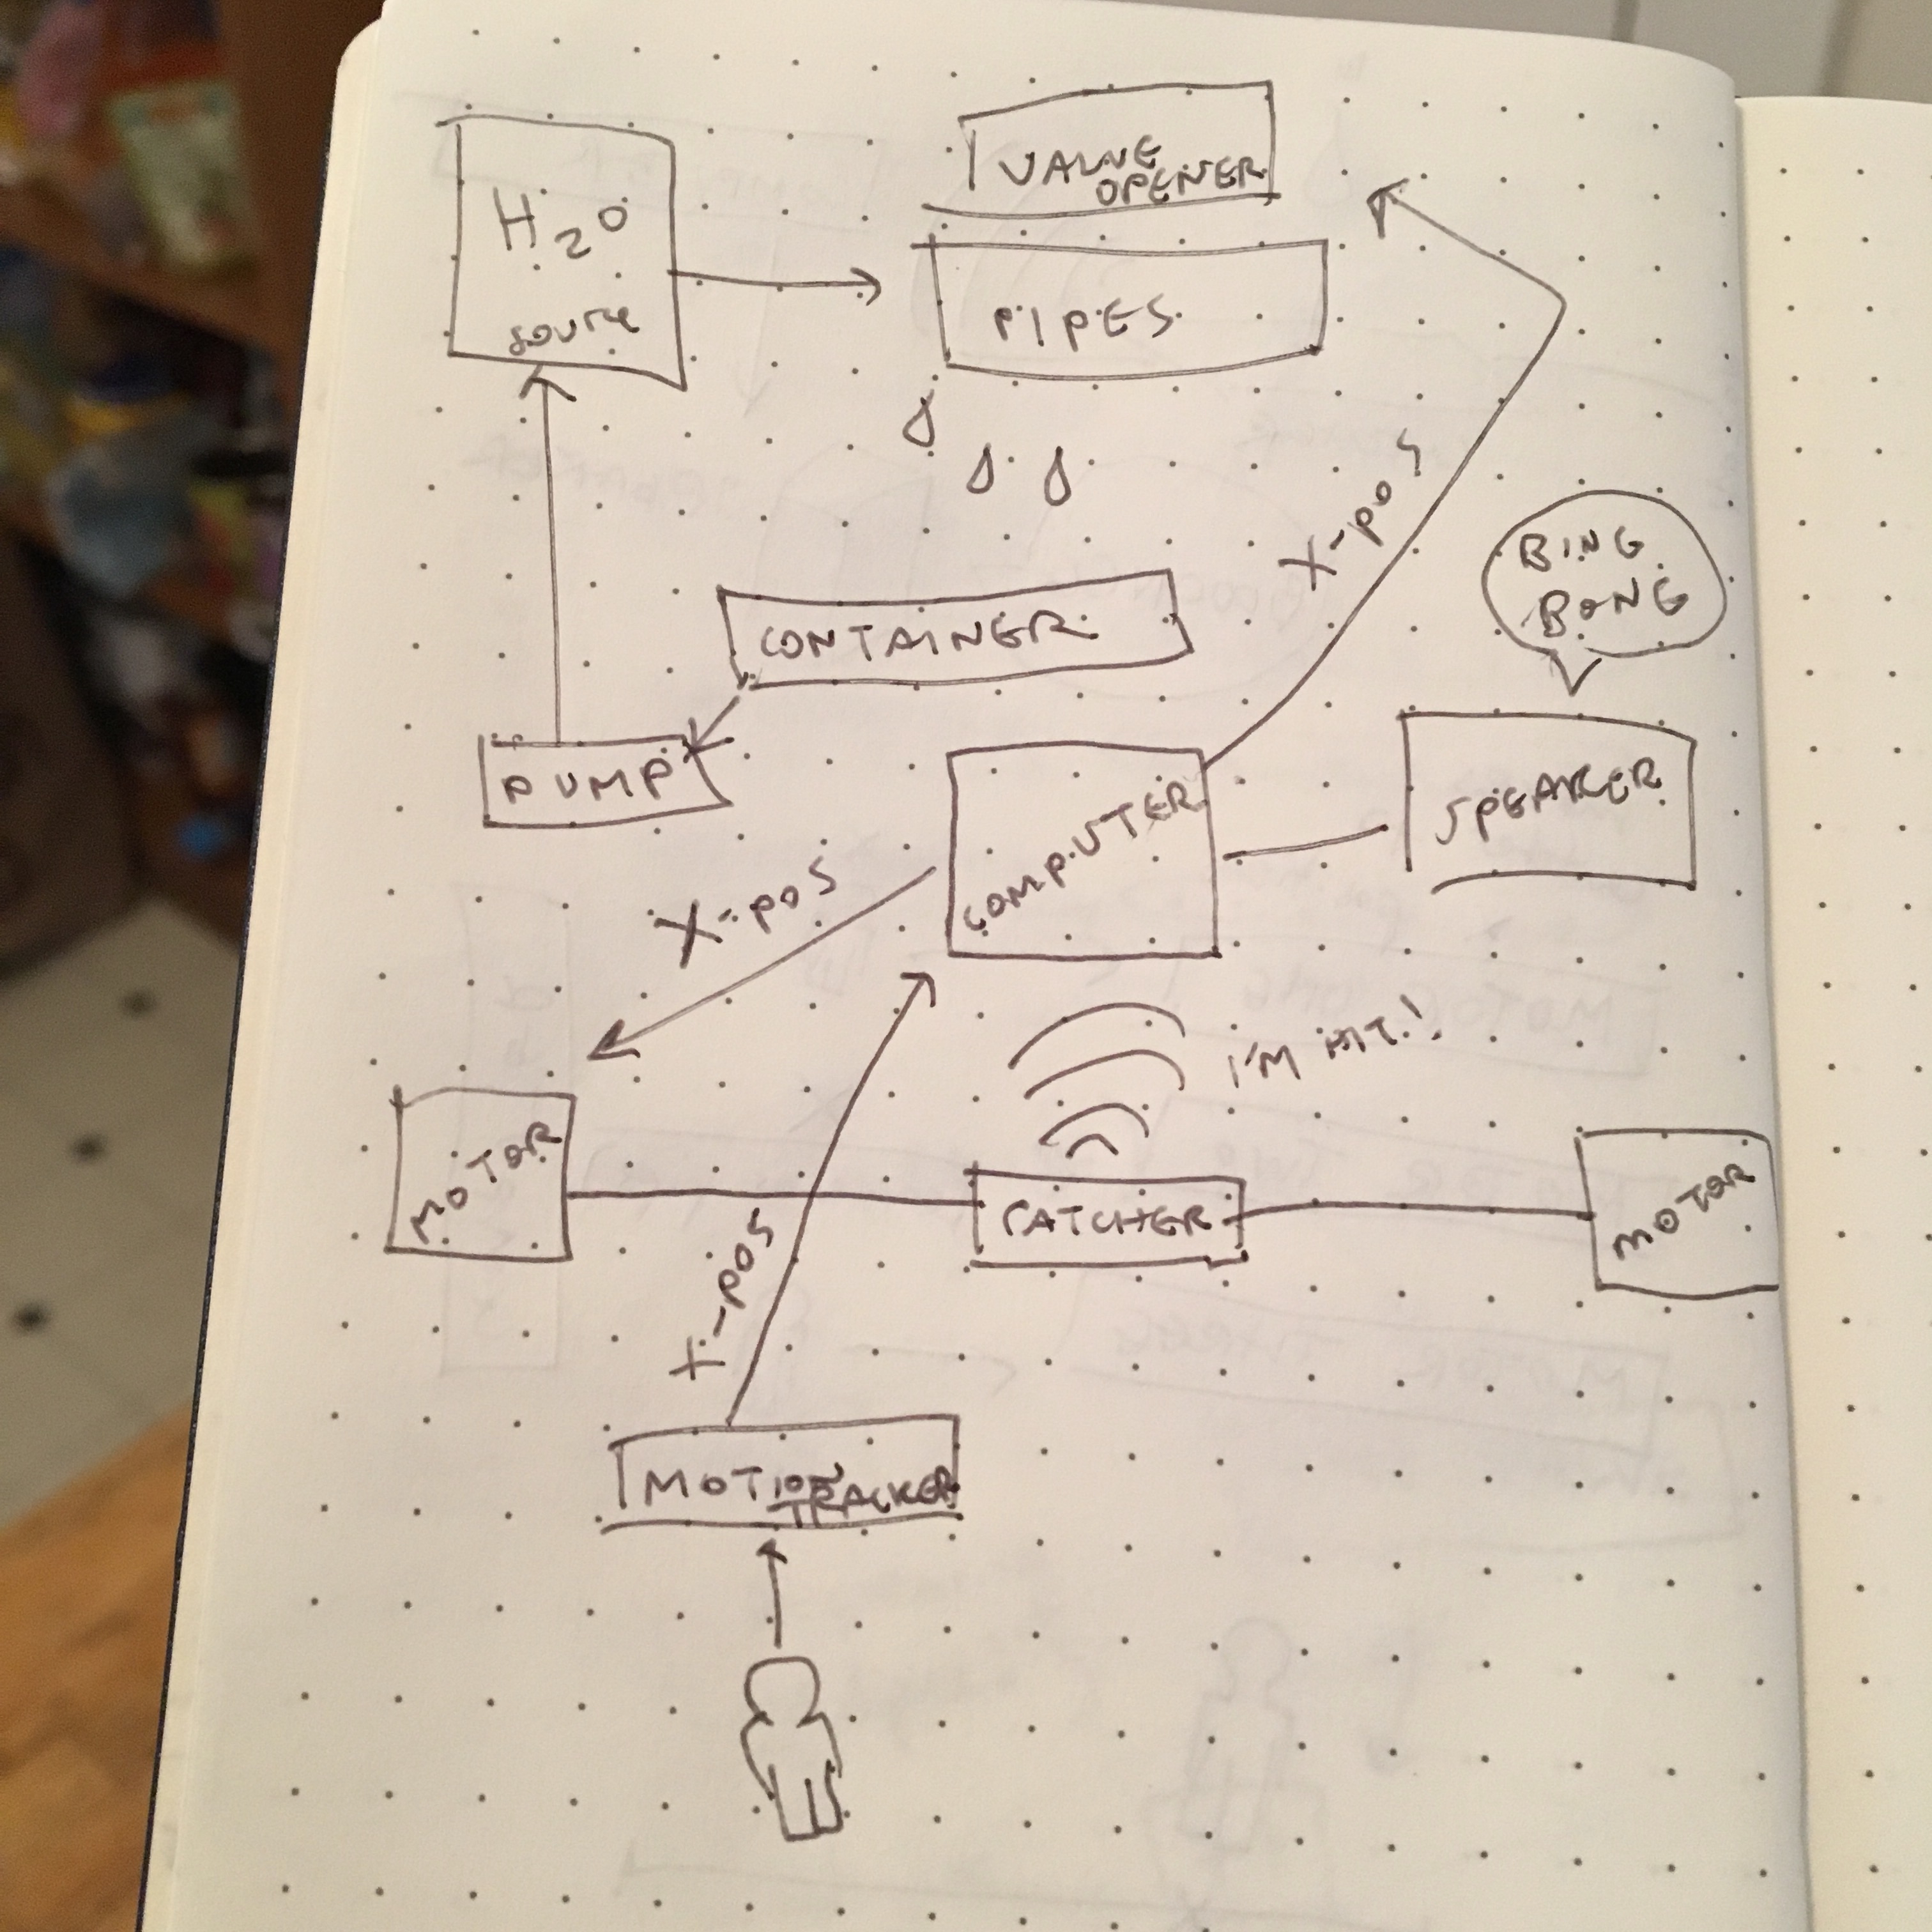 VALVE
OPENER
H2O
source
PIPES
X-POS
BING
BONG
CONTAINER
PUMP
COMPUTER
SPEAKER
X-POS
I'M HIT!
MOTOR
CATCHER
MOTOR
X-POS
MOTION
TRACKER